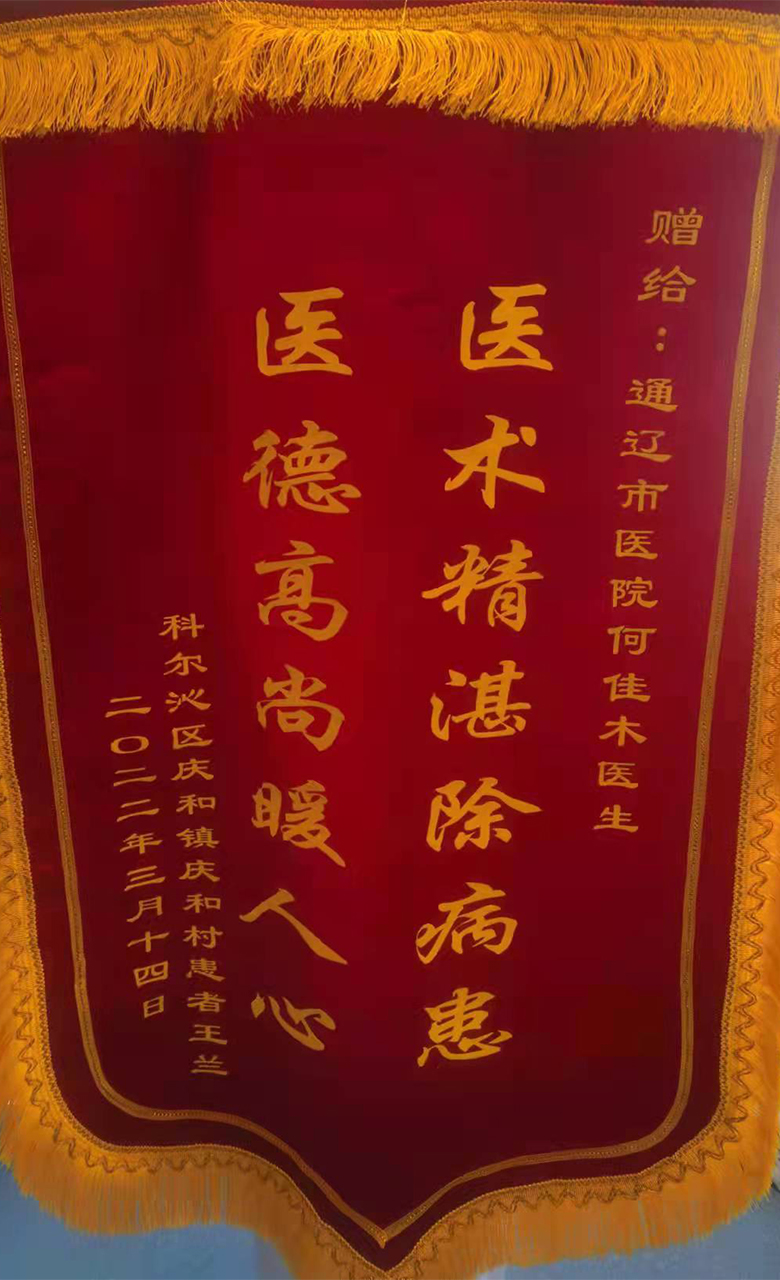 赠给：通辽市医院何佳木医生
医术精湛除病患
医德高尚暖人心
科尔沁区庆和镇庆和村患者王兰
二〇二二年三月十四日